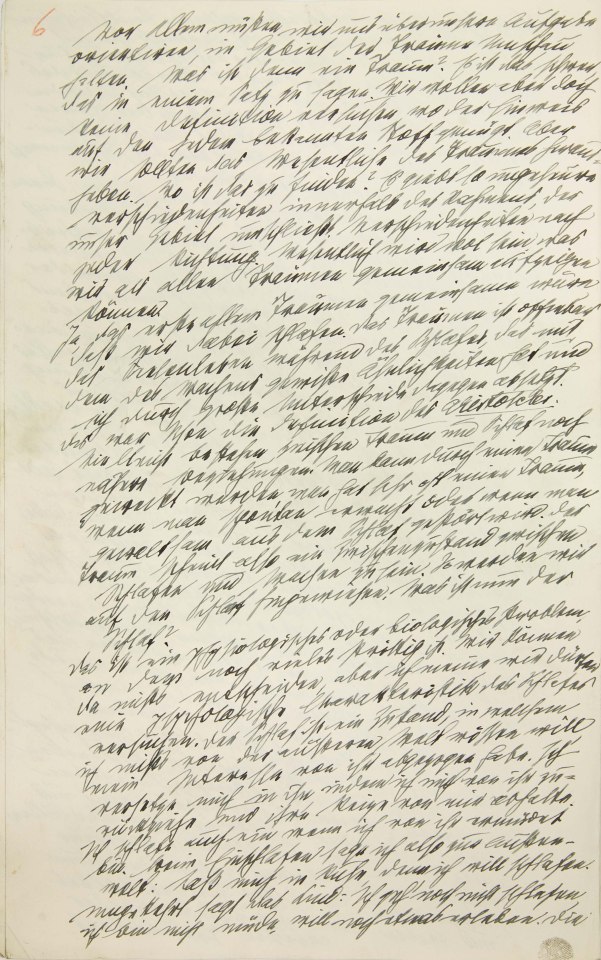 6
Vor allem müßen wir uns über unsere Aufgabe
orientiren, im Gebiet des Traumes Umschau
halten. Was ist denn ein Traum? Es ist schwer
das in einem Satz zu sagen. Wir wollen aber doch
keine Definition versuchen, wo der Hinweis
auf den jedem bekannten Stoff genügt. Aber
wir sollten das Wesentliche des Traumes heraus-
heben. Wo ist das zu finden? Es giebt so ungeheure
Verschiedenheiten innerhalb des Rahmens, der
unser Gebiet umschließt, Verschiedenheiten nach
jeder Richtung. Wesentlich wird wol sein was
wir als allen Träumen gemeinsam aufzeigen
können.
Ja, das erste allen Träumen gemeinsame wäre
daß wir dabei schlafen. Das Träumen ist offenbar
das Seelenleben während des Schlafes, das mit
dem des Wachens gewiße Ähnlichkeiten hat und
sich durch große Unterschiede dagegen absetzt.
Das war schon die Definition des Aristoteles.
Vielleicht bestehen zwischen Traum und Schlaf noch
nähere Beziehungen. Man kann durch einen Traum
geweckt werden, man hat sehr oft einen Traum,
wenn man spontan erwacht oder wenn man
gewaltsam aus dem Schlaf gestört wird. Der
Traum scheint also ein Zwischenzustand zwischen
Schlafen und Wachen zu sein. So werden wir
auf den Schlaf hingewiesen. Was ist nun der
Schlaf?
Das ist ein physiologisches oder biologisches Problem,
an dem noch vieles strittig ist. Wir können
da nichts entscheiden, aber ich meine wir dürfen
eine psychologische Charakteristik des Schlafes
versuchen. Der Schlaf ist ein Zustand, in welchem
ich nichts von der äusseren Welt wissen will
mein Interesse von ihr abgezogen habe. Ich
versetze mich in ihn indem ich mich von ihr zu-
rückziehe und ihre Reize von mir abhalte.
Ich schlafe auch ein wenn ich von ihr ermüdet
bin. Beim Einschlafen sage ich also zur Aussen-
welt: Laß mich in Ruhe denn ich will schlafen.
Umgekehrt sagt das Kind: Ich geh noch nicht schlafen,
ich bin nicht müde, will noch etwas erleben. Die